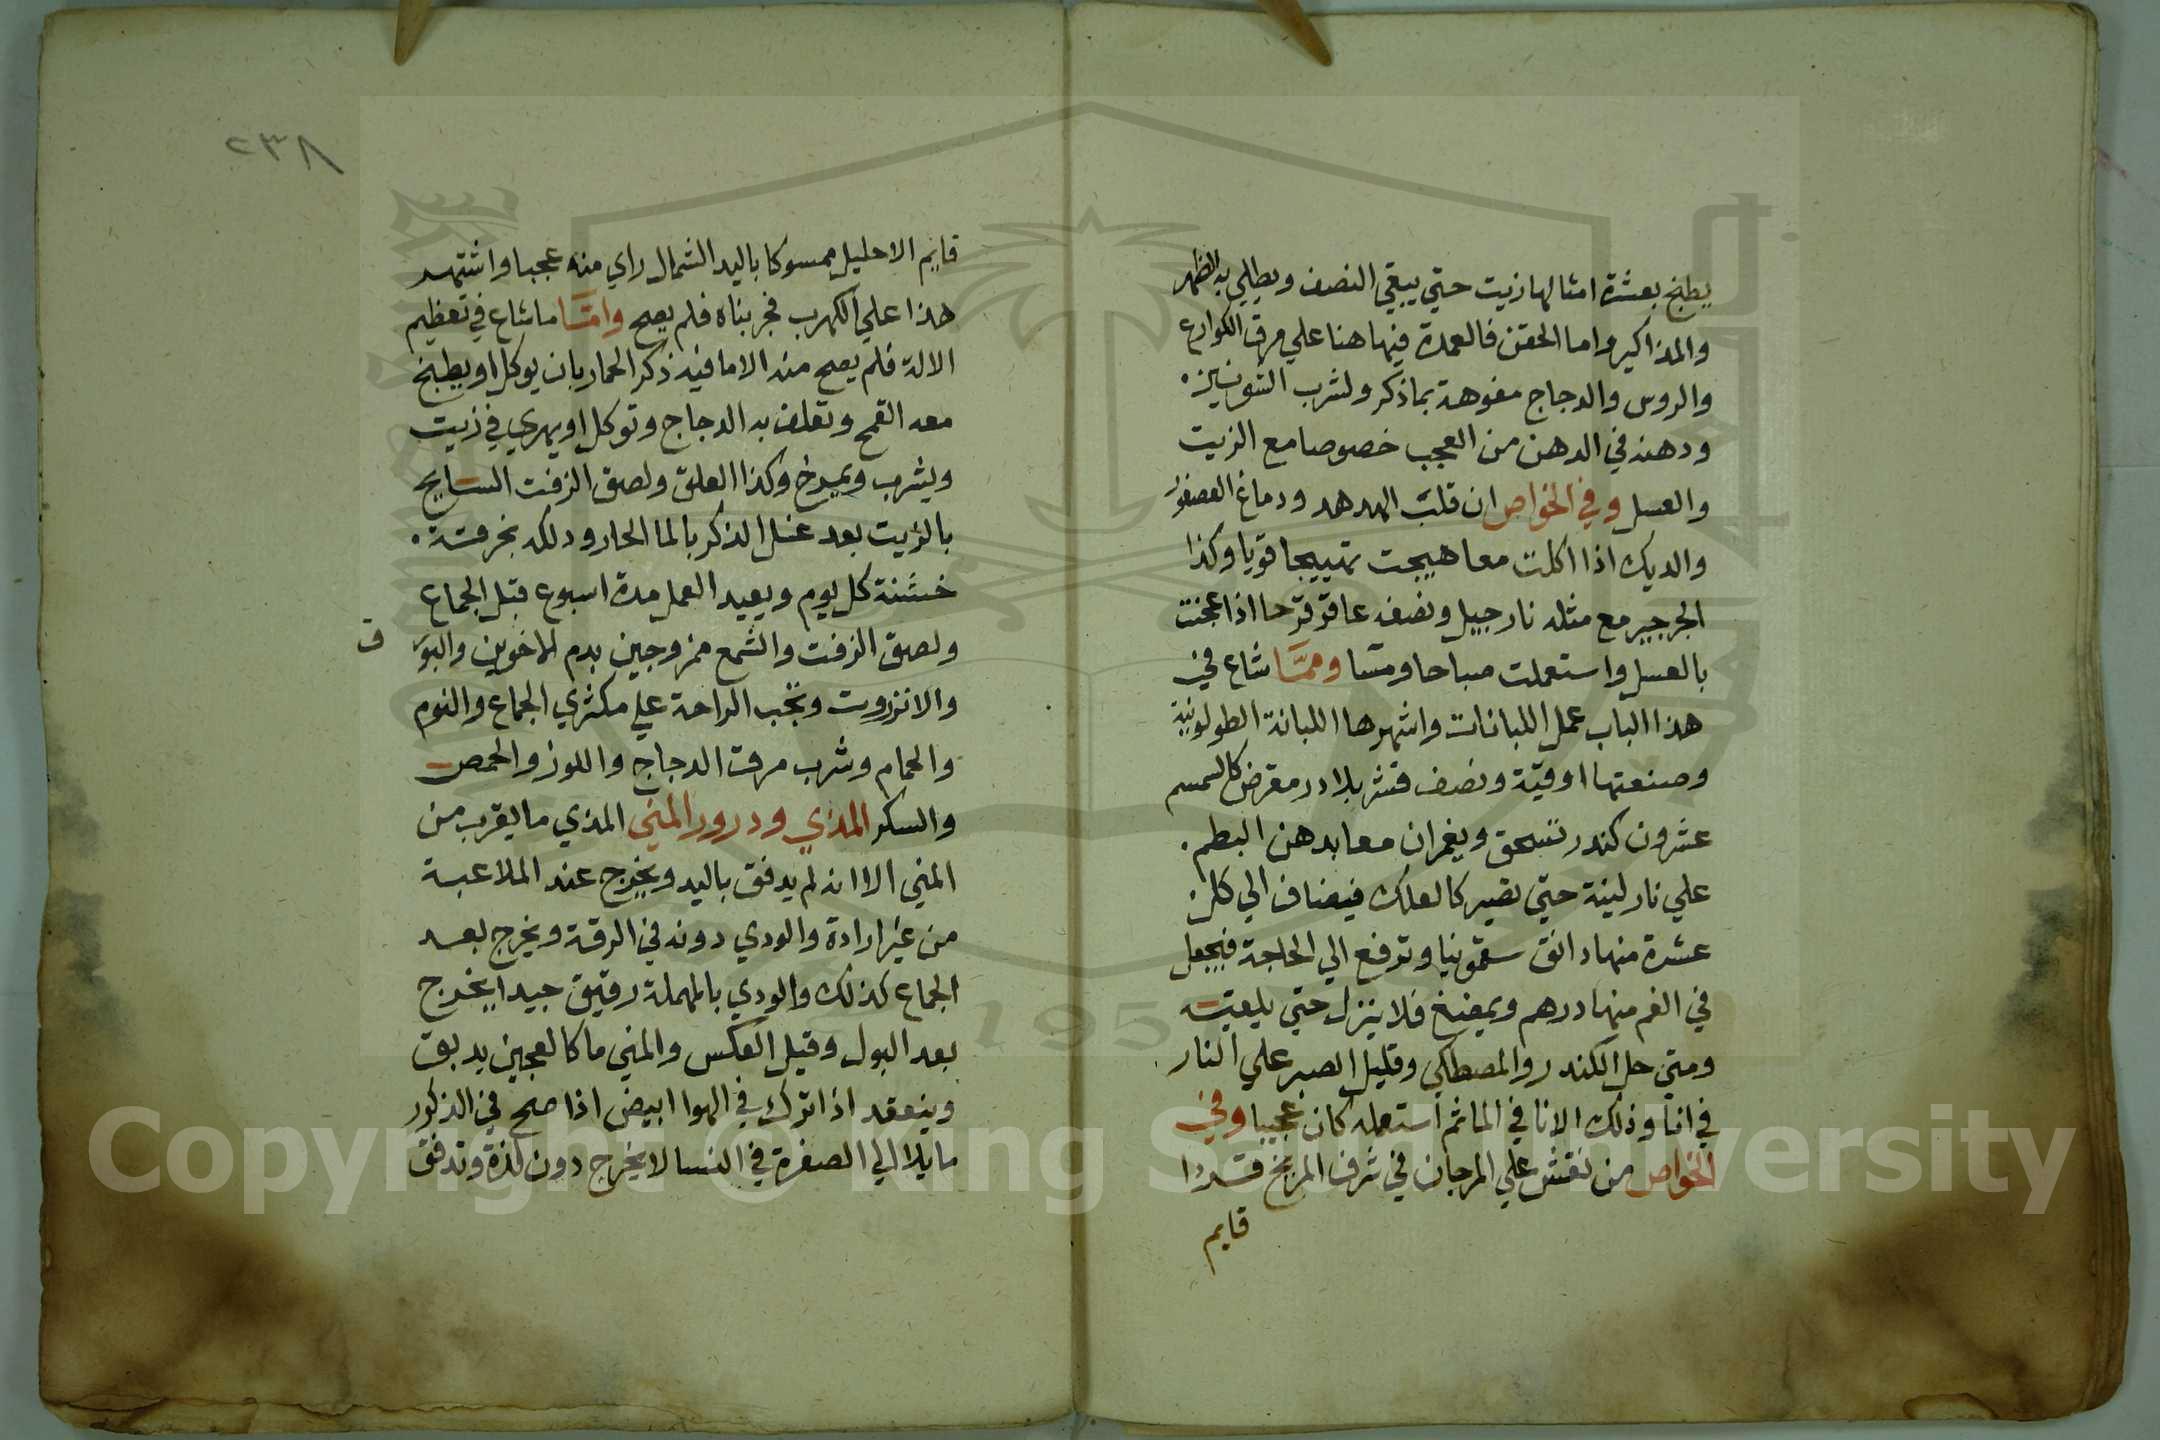 يطبخ بعشرة امثالها زيت حتي يبقي النصف ويطلي به الظهر
والمذاكير واما الحقن فالعمدة فيها هنا علي مرق الكوارع
والروس والدجاج مفوهة بماذكر ولشرب الشونيز
ودهنه في الدهن من العجب خصوصا مع الزيت
والعسل وفي الخواص ان قلب الهدهد ودماغ العصفور
والديك اذا اكلت معا هيجت تهييجا قويا وكذا
الجرجير مع مثله نارجيل ونصفه عاقرقرحا اذا عجنت
بالعسل واستعملت صباحا ومسا ومما شاع في
هذا الباب عمل اللبانات واشهرها اللبانة الطولونية
وصنعتها اوقية ونصف قشر بلادر مقرض كالسمسم
عشرون كندر تسحق ويغمران معا بدهن البطم
علي نار لينة حتي تصير كالعلك فيضاف الي كل
عشرة منها دانق سقمونيا وترفع الي الحاجة فيجعل
في الفم منها درهم ويمضغ فلا ينزل حتي يلقيه
ومتي حل الكندر والمصطكي وقليل الصبر علي النار
في انا وذلك الانا في الما ثم استعمله كان عجيبا وفي
الخواص من نقش علي المرجان في شرف المريخ قردا
قايم
٢٣٨
قايم الاحليل ممسوكا باليد الشمال راي منه عجبا واشتهر
هذا علي الكهرب فجربناه فلم يصح واما ما شاع في تعظيم
الالة فلم يصح منه الا ما فيه ذكر الحمار بان يوكل او يطبخ
معه القمح وتعلف به الدجاج وتوكل او يهري في زيت
ويشرب ويمرخ وكذا العلق ولصق الزفت السايح
بالزيت بعد غسل الذكر بالما الحار ودلكه بخرقة
خشنة كل يوم ويعيد العمل مدة اسبوع قبل الجماع
ولصق الزفت والشمع ممزوجين بدم الاخوين والبور
ق
والانزروت وتجب الراحة علي مكثري الجماع والنوم
والحمام وشرب مرق الدجاج واللوز والحمص
والسكر المذي ودرور المني المذي ما يقرب من
المني الا انه لم يدفق باليد ويخرج عند الملاعبة
من غير ارادة والودي دونه في الرقة ويخرج بعد
الجماع كذلك والودي بالمهملة رقيق جيدا يخرج
بعد البول وقيل العكس والمني ما كالعجين يدبق
وينعقد اذا ترك في الهوا ابيض اذا صح في الذكور
مايلا الي الصفرة في النسا لا يخرج دون لذة وتدفق
Copyright © King Saud University
195